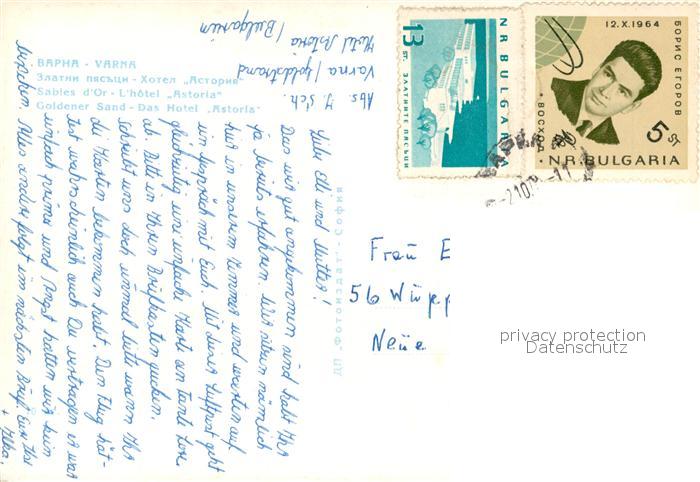 ВАРНА - VARNA
Златни пясъци - Хотел „Астория"
Sables d'Or - L'hôtel „Astoria"
Goldener Sand - Das Hotel „Astoria"
Abs. J. Sch.
Varna / Goldstrand
Hotel Astoria
/ Bulgarien
Liebe Elli und Mutter!
Das wir gut angekommen sind habt Ihr
ja bereits erfahren. Wir sitzen nämlich
hier in unserem Zimmer und warten auf
ein Gespräch mit Euch. Mit dieser Luftpost geht
gleichzeitig eine einfache Karte an Tante Lore
ab. Bitte in Ihren Briefkasten gucken.
Schreibt uns doch einmal bitte wann Ihr
die Karten bekommen habt. Den Flug hät-
test wahrscheinlich auch Du vertragen es war
einfach prima und Angst hatten wir kein
bißchen. Alles andere folgt im nächsten Brief. Eure
+ Ilka.
ДП „Фотоиздат" - София
13 ст.
ЗЛАТНИТЕ ПЯСЪЦИ
N R BULGARIA
12.X.1964
БОРИС ЕГОРОВ
• ВОСХОД •
5 ст
N.R.BULGARIA
Frau E
56 Wupp
Neue
privacy protection
Datenschutz